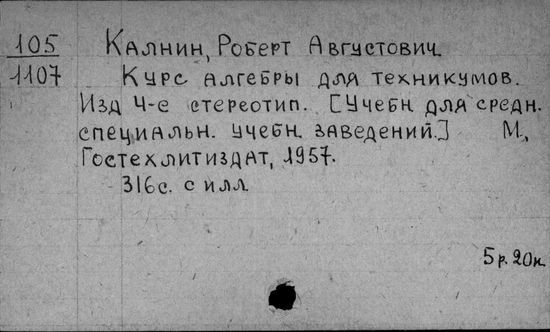 105
1107
Калнин, Роберт Августович.
Курс алгебры для техникумов.
Изд 4-е стереотип. [Учебн. для средн.
специальн. учебн. заведений.] М.,
Гостехлитиздат, 1957.
316с. с илл.
5р. 20к.